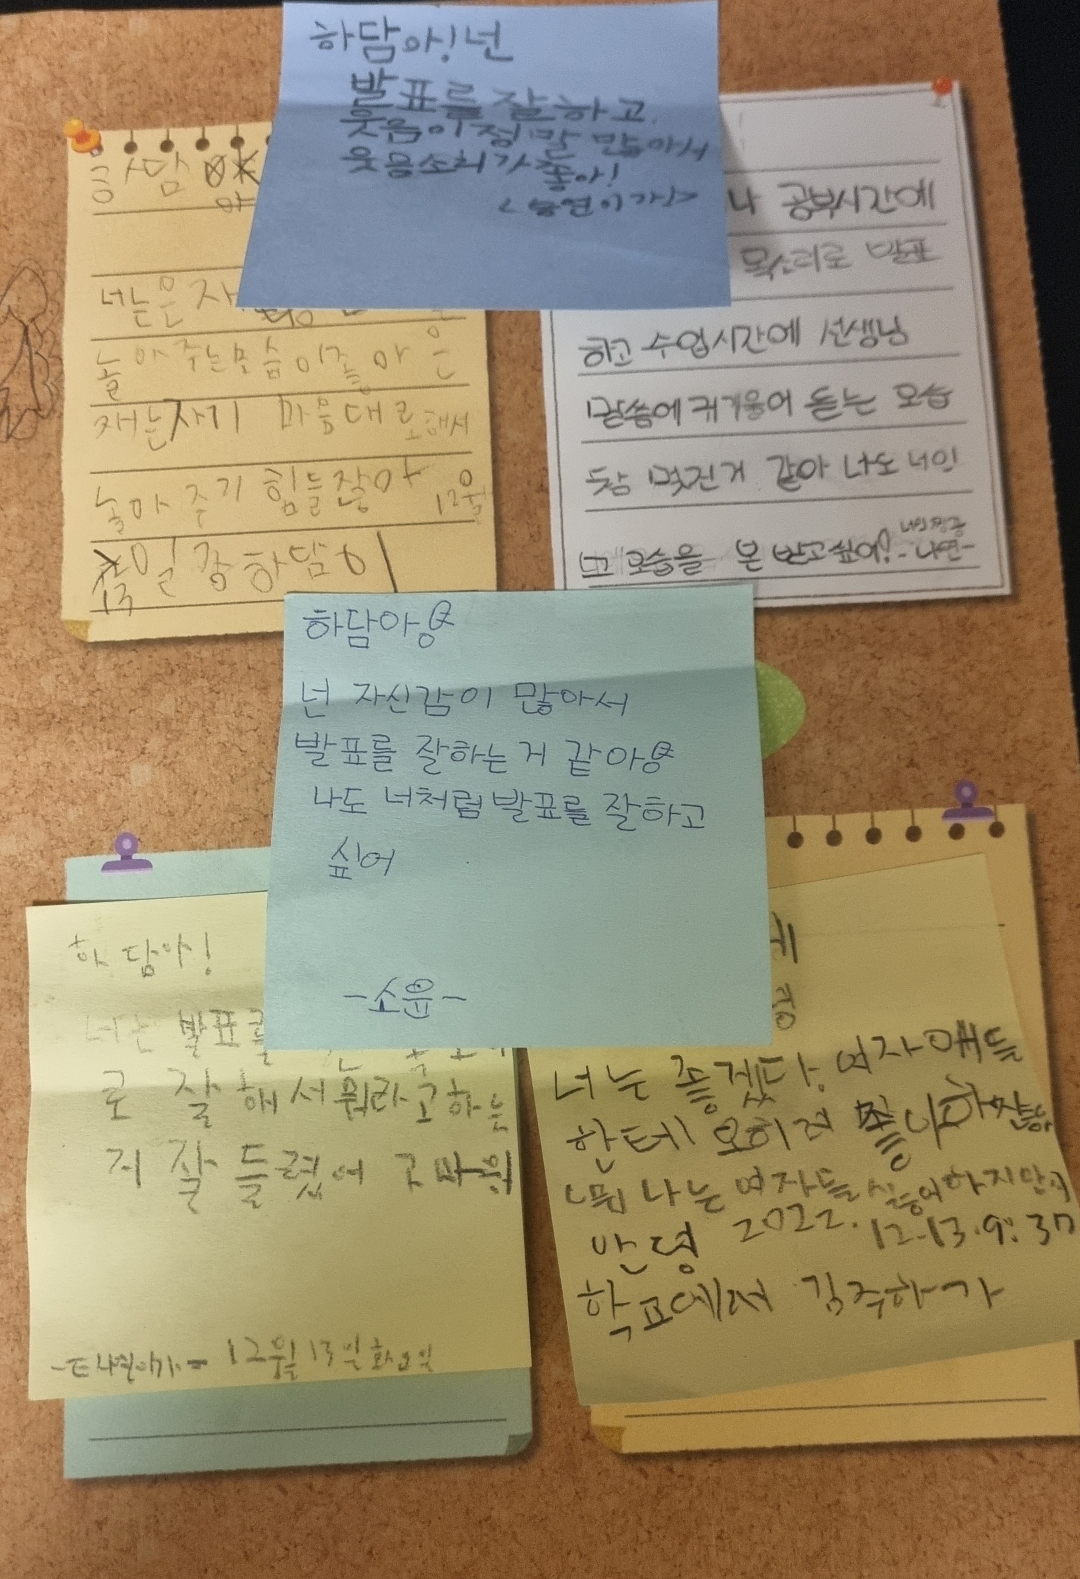 하담아! 넌
발표를 잘하고
웃음이 정말 많아서
웃음소리가 좋아!
하담
야
너는
놀아주는 모습이 좋아 은
재는 자기 마음대로 해서
놀아주기 힘들잖아 12월
13일 하담이
나 공부시간에
목소리로 발표
하고 수업시간에 선생님
말씀에 귀기울여 듣는 모습
멋진거 같아 나도 너인
그 모습을 본받고싶어! -나연-
하담아
넌 자신감이 많아서
발표를 잘하는거 같아
나도 너처럼 발표를 잘하고
싶어
-소윤-
하담아!
너는 발표를
로 잘해서 뭐라고하는
지 잘 들렸어 고마워
12월 13일 화요일
너는 좋겠다. 여자애들
한테 오히려
나는 여자들 하지만
안녕 2022. 12.13.9:37
학교에서 김주하가